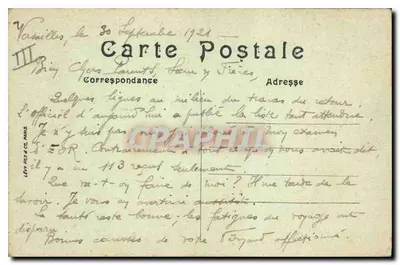 Versailles, le 30 Septembre 1921
III
Carte Postale
Bien Chers Parents, Sœur et Frères,
Correspondance Adresse
Quelques lignes au milieu du tracas du retour.
L'officiel d'aujourd'hui a publié la liste tant attendue.
Je n'y suis pas
examen
Contrairement à tout ce qu'on avait dit
il y a 113 reçus seulement
Que va-t-on faire de moi? Il me tarde de le
savoir. Je vous en avertirai aussitôt.
La santé reste bonne; les fatigues du voyage ont
disparu.
Bonnes caresses de votre affectionné.
LÉVY FILS & CIE, PARIS
CPAPHIL.com